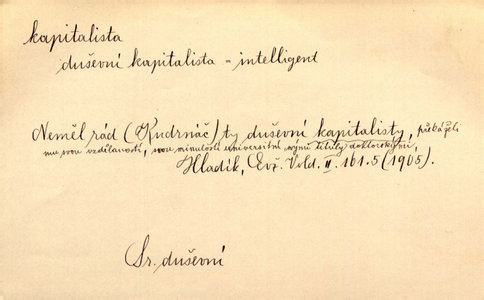 kapitalista
duševní kapitalista - intelligent
Neměl rád (Kudrnáč) ty duševní kapitalisty, překáželi
mu svou vzdělaností, svou minulostí universitní, svými tituly doktorskými,
Hladík, Evž. Vold. II. 161.5 (1905).
Sr. duševní